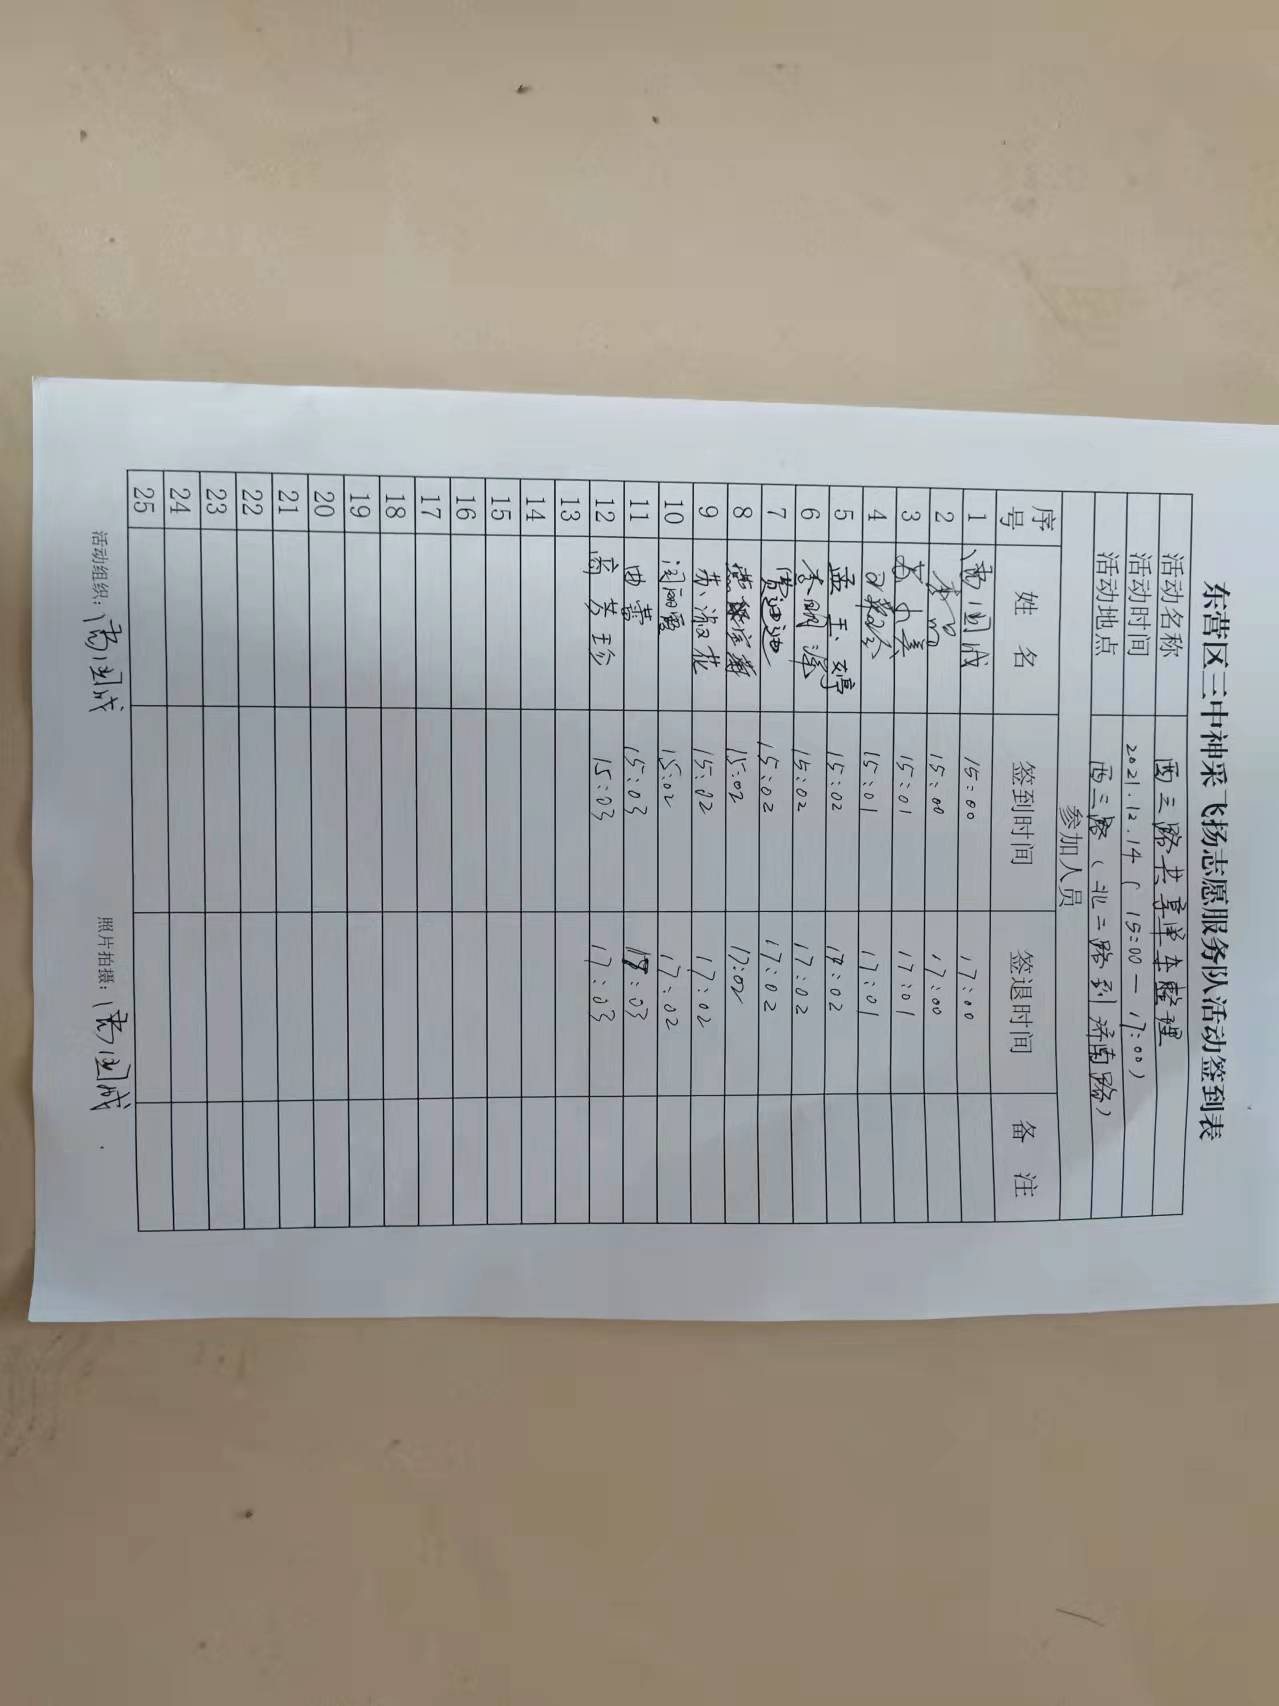 东营区三中神采飞扬志愿服务队活动签到表
活动名称 西三路共享单车整理
活动时间 2021.12.14（15:00—17:00）
活动地点 西三路（北二路到济南路）
参加人员
序号 姓 名 签到时间 签退时间 备 注
1 国成 15:00 17:00
2 李 15:00 17:00
3 15:01 17:01
4 15:01 17:01
5 孟玉婷 15:02 17:02
6 李明泽 15:02 17:02
7 贾迪迪 15:02 17:02
8 燕 15:02 17:02
9 苏淑花 15:02 17:02
10 闫丽霞 15:02 17:02
11 曲蕾 15:03 17:03
12 商芳珍 15:03 17:03
13
14
15
16
17
18
19
20
21
22
23
24
25
活动组织： 国成 照片拍摄： 国成